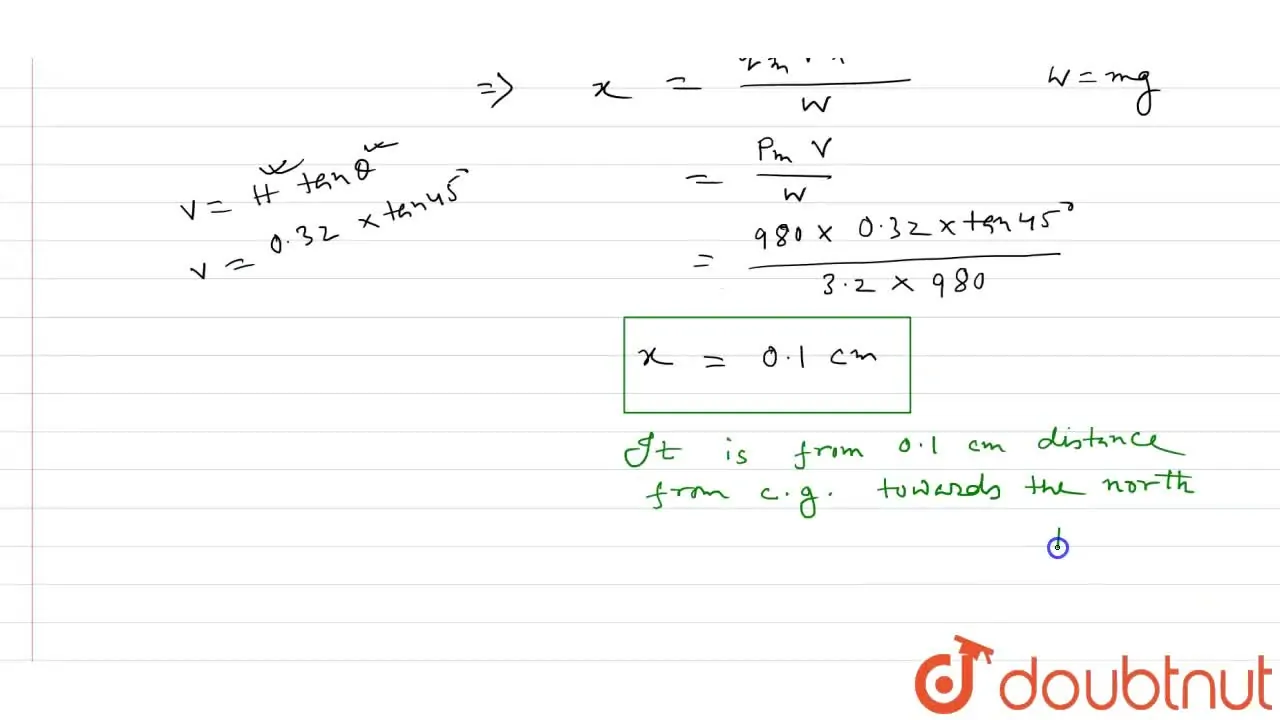 ⇒ x = / W
W = mg
= Pm V / W
V = H tanθ
V = 0.32 × tan45°
= 980 × 0.32 × tan45° / 3.2 × 980
x = 0.1 cm
It is from 0.1 cm distance
from c.g. towards the north
doubtnut